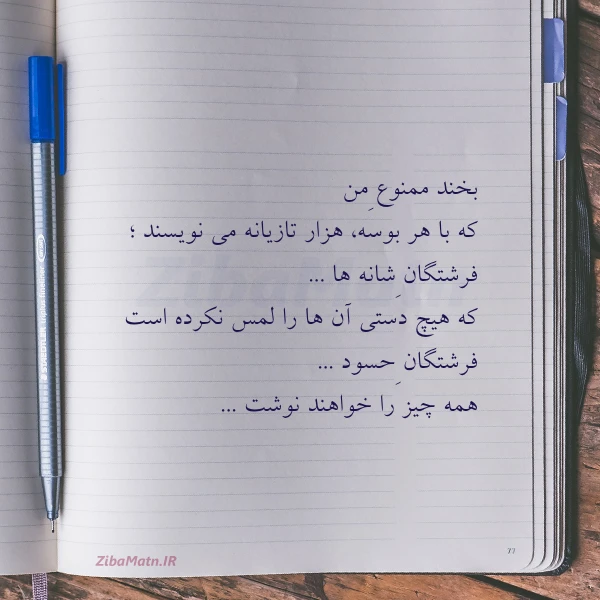 بخند ممنوع ِمن
که با هر بوسه، هزار تازیانه می نویسند ؛
فرشتگان ِشانه ها ...
که هیچ دستی آن ها را لمس نکرده است
فرشتگان ِحسود ...
همه چیز را خواهند نوشت ...
ZibaMatn.IR
77